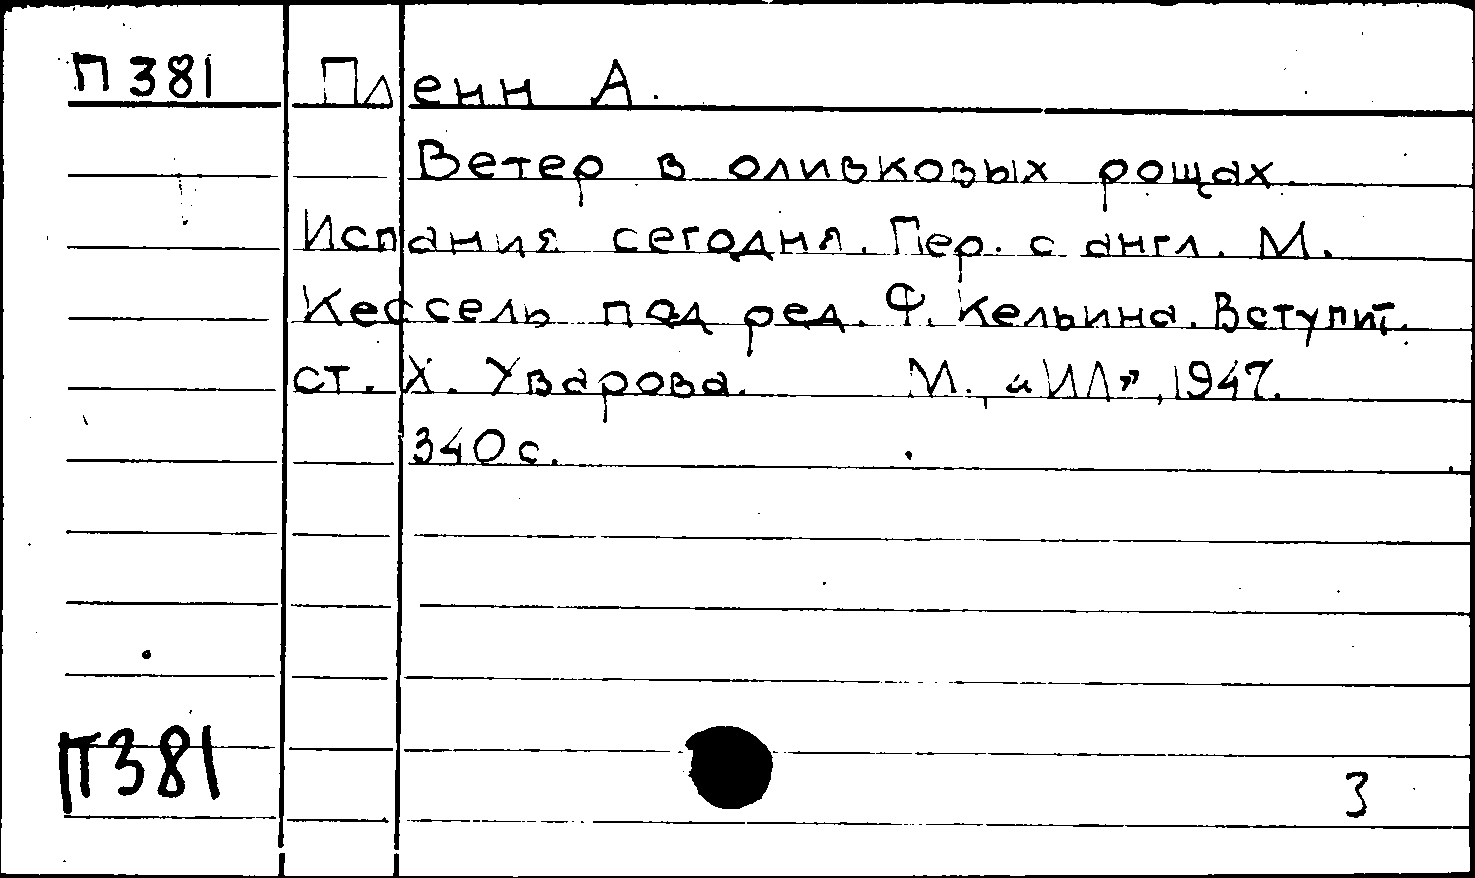 П 381 Пленн А.
Ветер в оливковых рощах.
Испания сегодня. Пер. с англ. М.
Кессель под ред. Ф. Кельина. Вступит.
ст. Х. Уварова. М., «ИЛ», 1947.
340 с.
П381
3